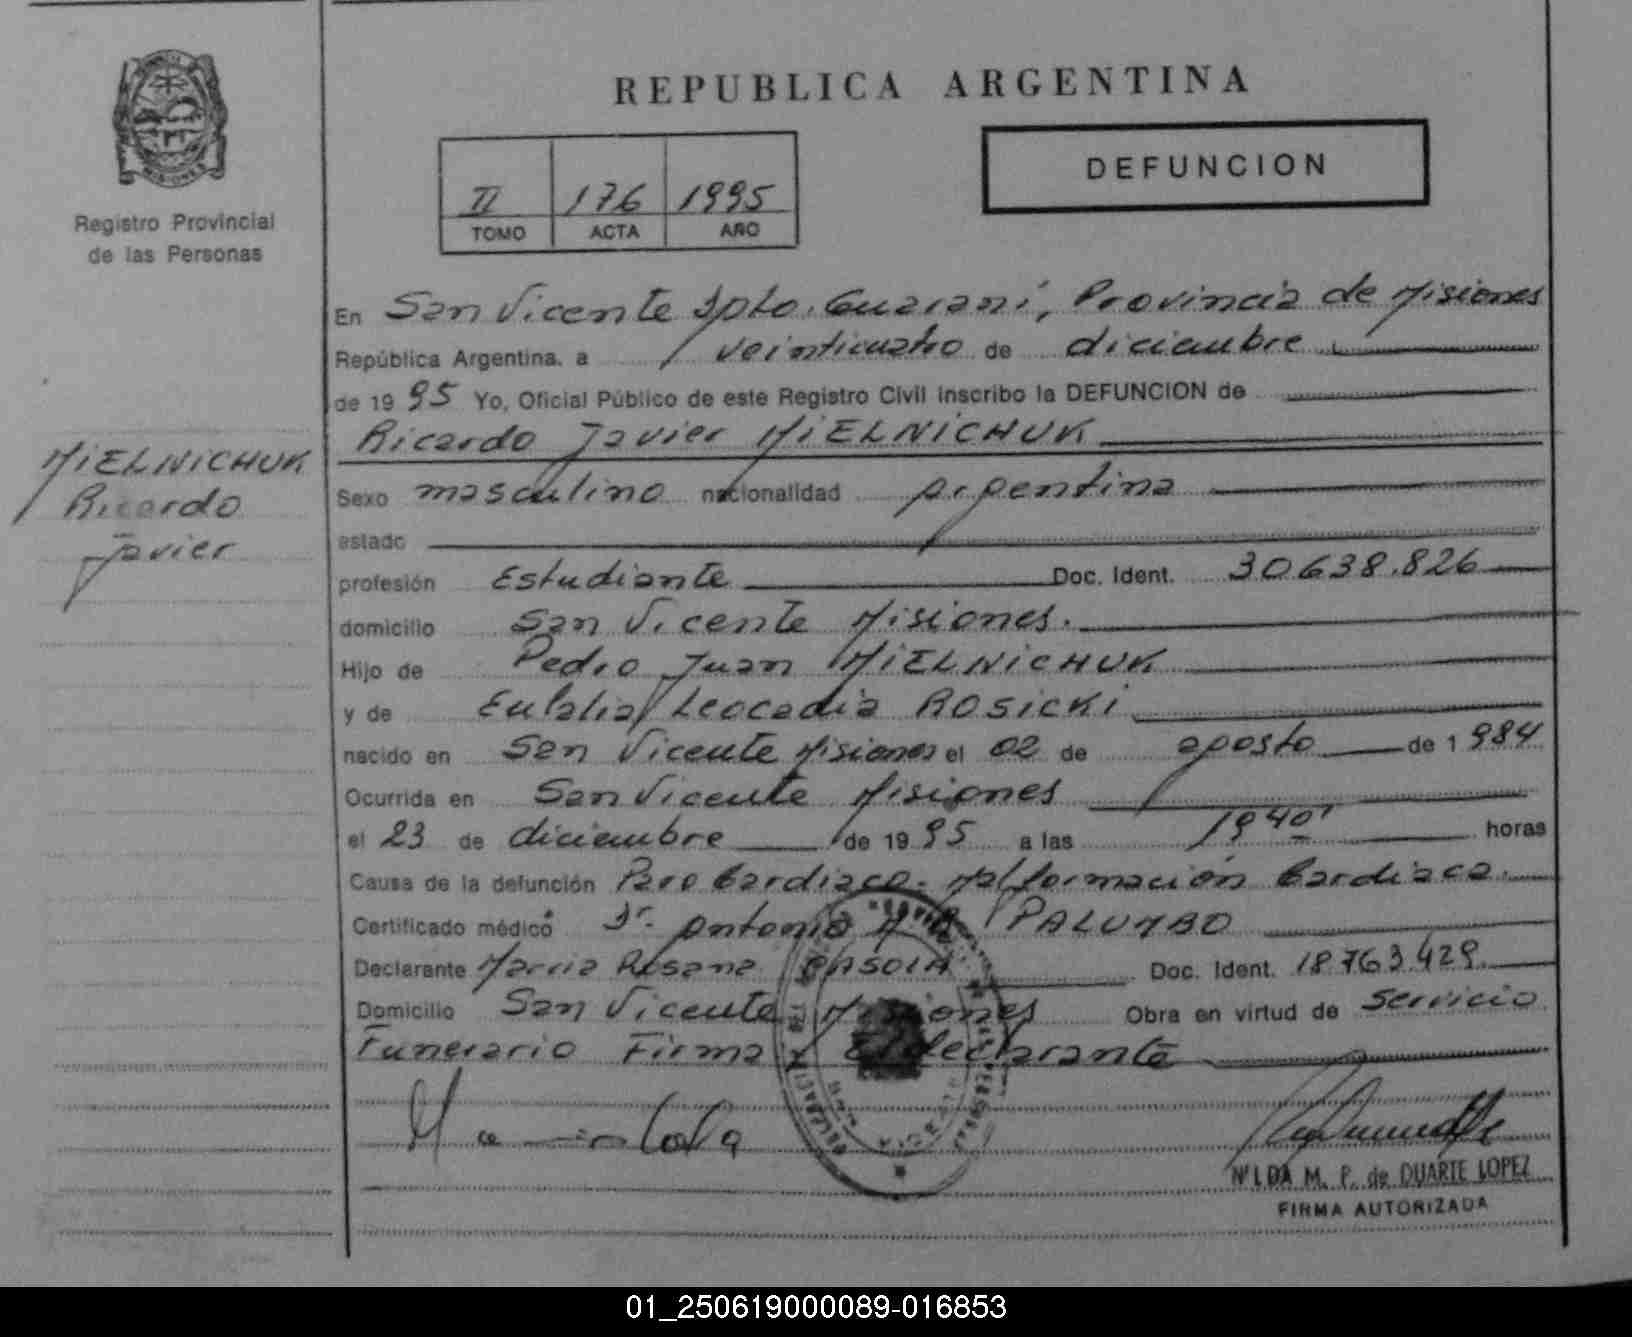 REPUBLICA ARGENTINA
MISIONES
Registro Provincial
de las Personas
II 176 1995
TOMO ACTA AÑO
DEFUNCION
En San Vicente Dpto. Guaraní, Provincia de Misiones
República Argentina, a veinticuatro de diciembre
de 19 95 Yo, Oficial Público de este Registro Civil inscribo la DEFUNCION de
Ricardo Javier MIELNICHUK
MIELNICHUK
Ricardo
Javier
Sexo masculino nacionalidad argentina
estado
profesión Estudiante Doc. Ident. 30638.826
domicilio San Vicente Misiones.
Hijo de Pedro Juan MIELNICHUK
y de Eulalia Leocadia ROSICKI
nacido en San Vicente Misiones el 02 de agosto de 1 984
Ocurrida en San Vicente Misiones
el 23 de diciembre de 19 95 a las 19 40' horas
Causa de la defunción Paro Cardiaco. Malformación Cardiaca.
Certificado médico Dr. Antonio PALUMBO
Declarante María Rosana Doc. Ident. 18.763.429
Domicilio San Vicente Misiones Obra en virtud de Servicio
Funerario Firma El declarante
NILDA M. P. de DUARTE LOPEZ
FIRMA AUTORIZADA
01_250619000089-016853